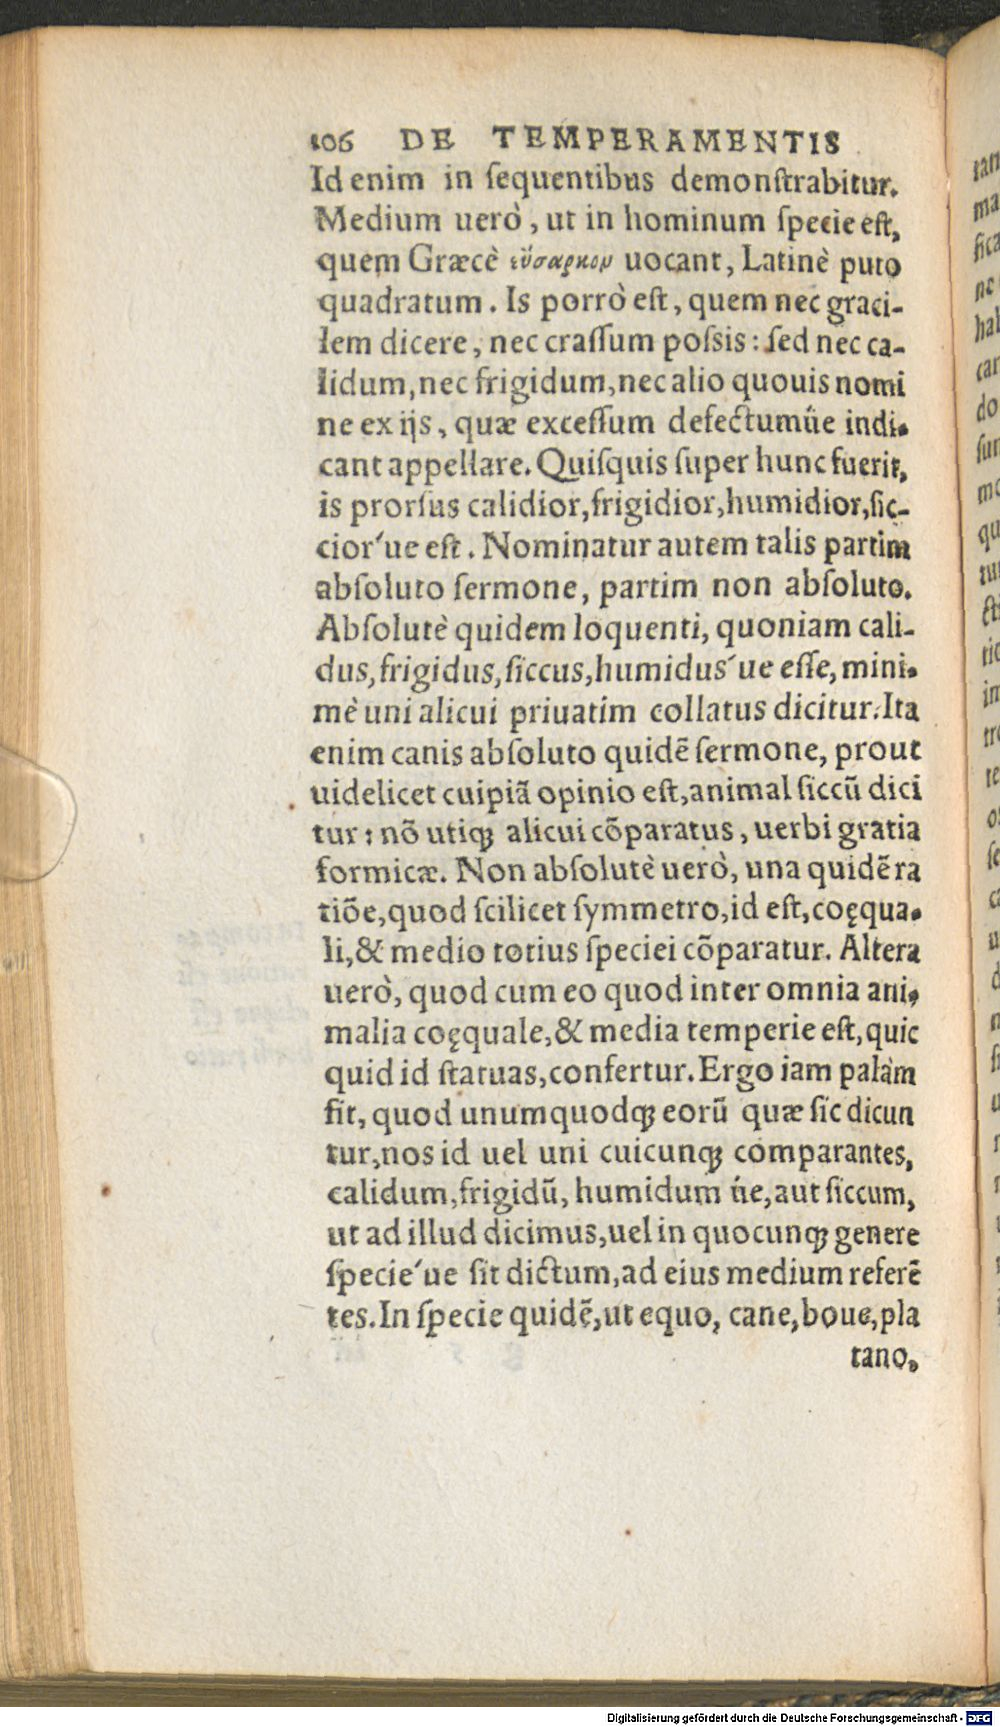 106 DE TEMPERAMENTIS
Id enim in ſequentibus demonſtrabitur.
Medium uerò, ut in hominum ſpecie eſt,
quem Græcè εὔσαρκον uocant, Latinè puto
quadratum. Is porrò eſt, quem nec graci-
lem dicere, nec craſſum poſsis: ſed nec ca-
lidum, nec frigidum, nec alio quouis nomi
ne ex ijs, quæ exceſſum defectumúe indi-
cant appellare. Quiſquis ſuper hunc fuerit,
is prorſus calidior, frigidior, humidior, ſic-
cior´ue eſt. Nominatur autem talis partim
abſoluto ſermone, partim non abſoluto.
Abſolutè quidem loquenti, quoniam cali-
dus, frigidus, ſiccus, humidus´ue eſſe, mini-
mè uni alicui priuatim collatus dicitur. Ita
enim canis abſoluto quidẽ ſermone, prout
uidelicet cuipiã opinio eſt, animal ſiccũ dici
tur: nõ utiqꝫ alicui cõparatus, uerbi gratia
formicæ. Non abſolutè uerò, una quidẽ ra
tiõe, quod ſcilicet ſymmetro, id eſt, coęqua-
li, & medio totius ſpeciei cõparatur. Altera
uerò, quod cum eo quod inter omnia ani-
malia coęquale, & media temperie eſt, quic
quid id ſtatuas, confertur. Ergo iam palàm
fit, quod unumquodqꝫ eorũ quæ ſic dicun
tur, nos id uel uni cuicunqꝫ comparantes,
calidum, frigidũ, humidum úe, aut ſiccum,
ut ad illud dicimus, uel in quocunqꝫ genere
ſpecie´ue ſit dictum, ad eius medium referẽ
tes. In ſpecie quidẽ, ut equo, cane, boue, pla
tano,
Digitalisierung gefördert durch die Deutsche Forschungsgemeinschaft - DFG